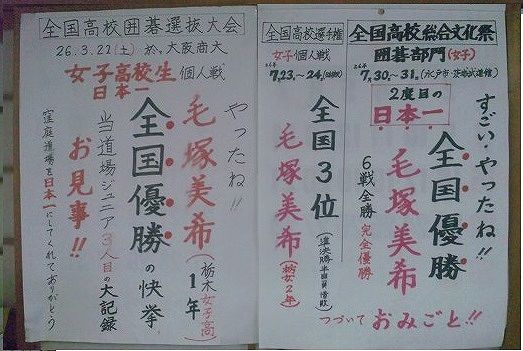 全国高校囲碁選抜大会
26.3.21(土) 於、大阪商大
女子高校生日本一 個人戦
やったね!!
毛塚美希(栃木女子高)1年
全国優勝の快挙
当道場ジュニア3人目の大記録
お見事!!
窪庭道場を日本一にしてくれてありがとう
全国高校総合文化祭
囲碁部門(女子)
7,30〜31.
2度目の
日本一
すごい・やったね!!
全国優勝
毛塚美希
6戦全勝 完全優勝
全国高校選手権
女子個人戦
7,23.〜24.
全国3位
(準決勝半目負惜敗)
毛塚美希
(栃女2年)
つづいておみごと!!